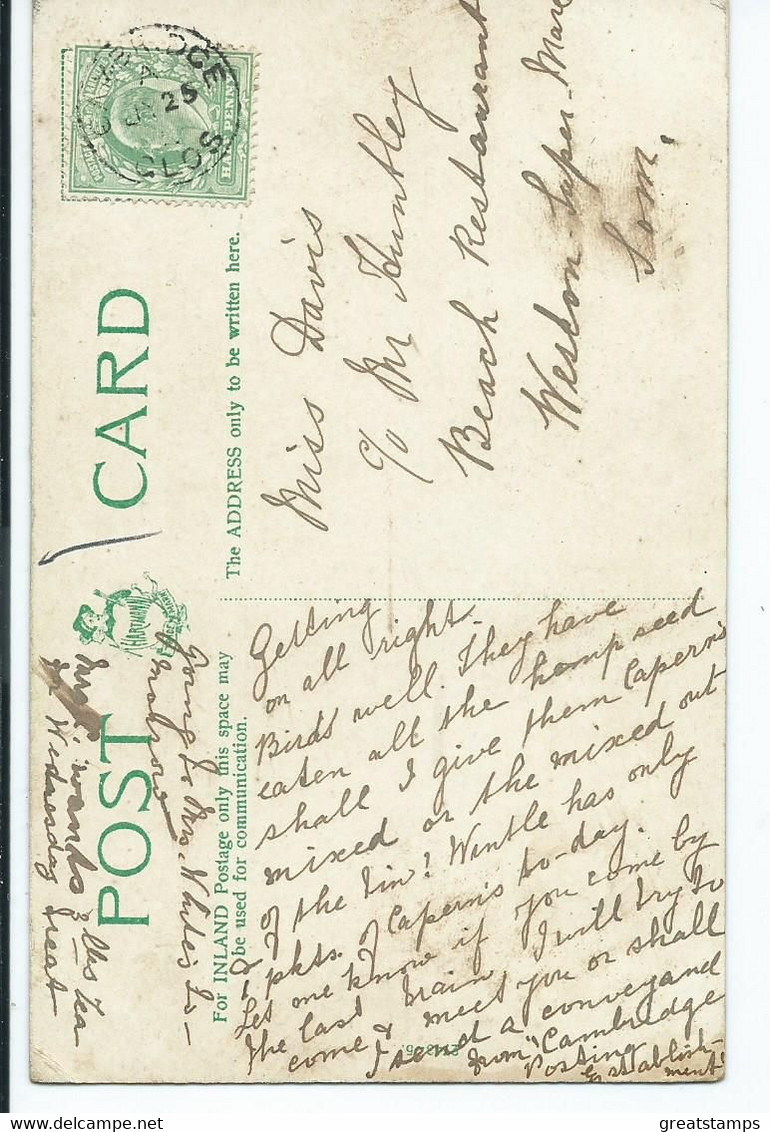 POST CARD
HARTMANN
For INLAND Postage only this space may
be used for communication.
The ADDRESS only to be written here.
HALFPENNY
BRIDGE
A
25
GLOS
Miss Davis
c/o Mr Huntley
Beach Restaurant
Weston-Super-Mare
Som.
Getting
on all right.
Birds well. They have
eaten all the hemp seed
shall I give them Caperns
mixed or the mixed out
of the tin? Wintle has only
pkts. of Caperns to-day.
Let me know if you come by
the last train, I will try to
come & meet you or shall
I send a conveyand
from "Cambridge
Posting
Establish-
ment"
Going to Mrs. White's to-
morrow
wants 3 lbs Tea
Wednesday
greatstamps
greatstamps